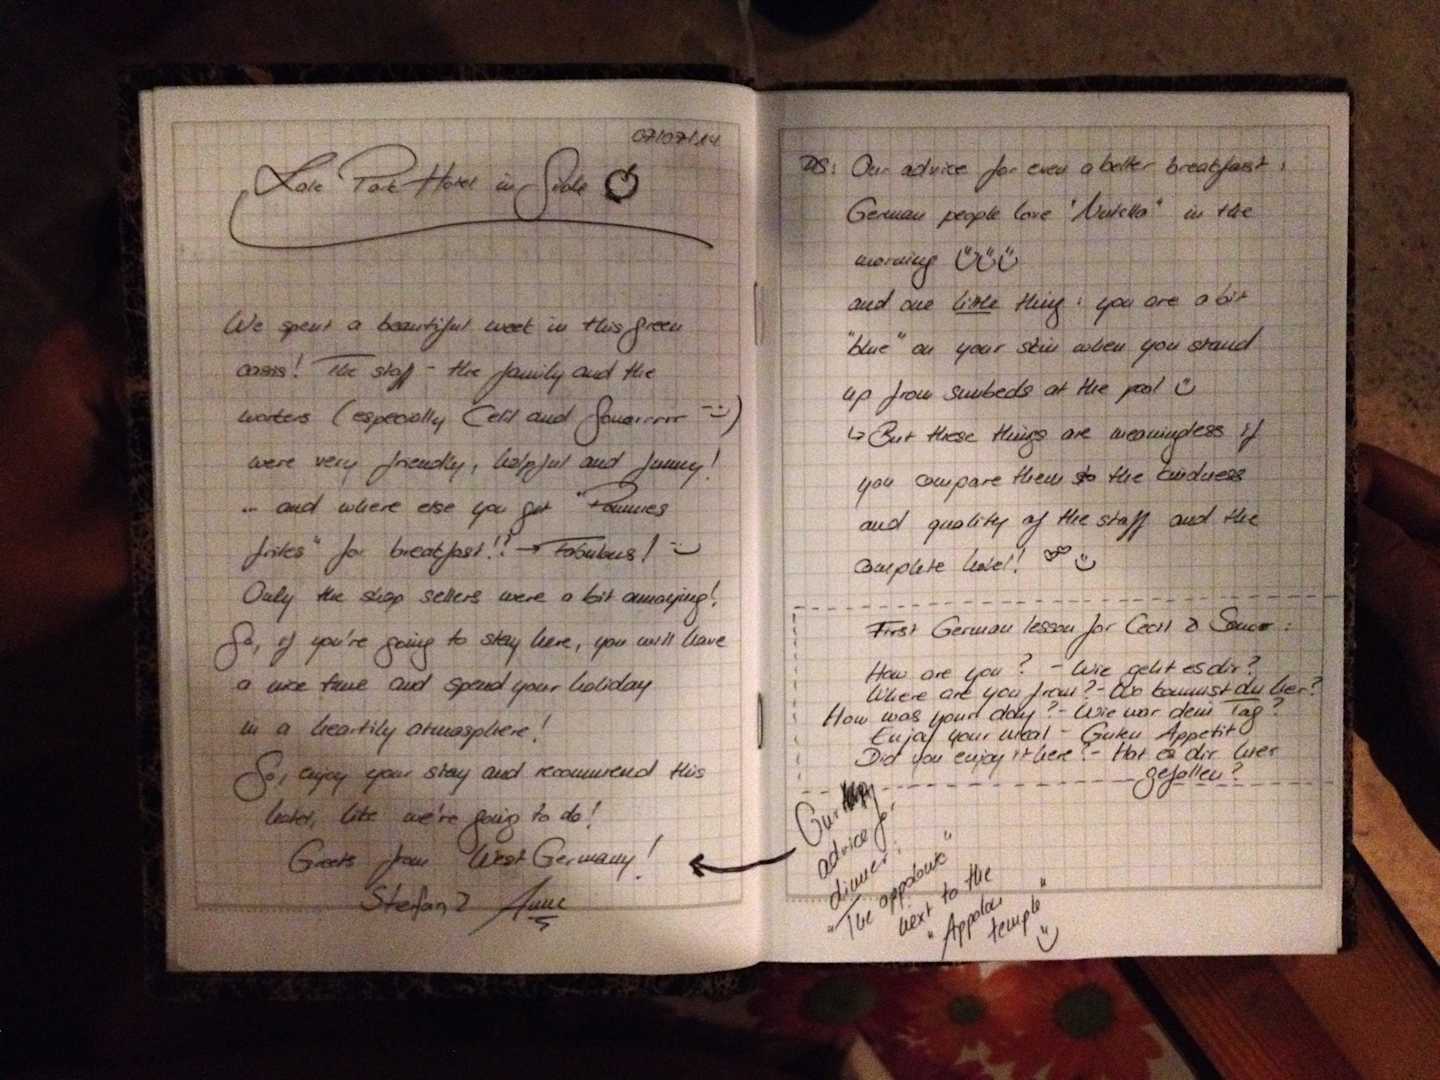 07/07/14
Lale Park Hotel in Side
We spent a beautiful week in this green
oasis! The staff - the family and the
workers (especially Cecil and Sonerrrrr =))
were very friendly, helpful and funny!
... and where else you get "Pommes
frites" for breakfast!? → Fabulous! =)
Only the shop sellers were a bit annoying!
So, if you're going to stay here, you will have
a nice time and spend your holiday
in a heartily atmosphere!
So, enjoy your stay and recommend this
hotel, like we're going to do!
Greets from West Germany!
Stefan & Anne
PS: Our advice for even a better breakfast:
German people love "Nutella" in the
morning
and one little thing: you are a bit
"blue" on your skin when you stand
up from sunbeds at the pool
↳ But these things are meaningless if
you compare them to the kindness
and quality of the staff and the
complete hotel!
First German lesson for Cecil & Soner:
How are you? - Wie geht es dir?
Where are you from? - Wo kommst du her?
How was your day? - Wie war dein Tag?
Enjoy your meal - Guten Appetit
Did you enjoy it here? - Hat es dir hier
gefallen?
Our
advice for
dinner:
"The appolonic"
next to the
"Appolon
temple"